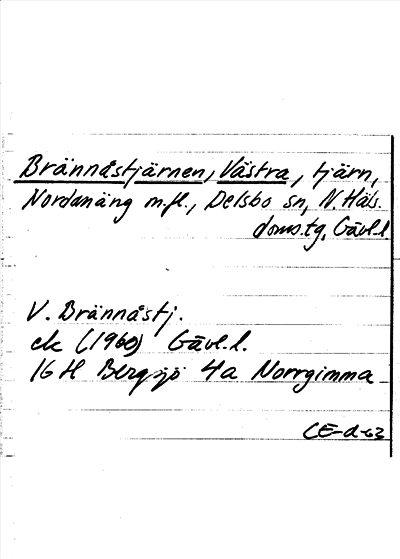 Brännåstjärnen, Västra, tjärn,
Nordanäng m.fl., Delsbo sn, N. Häls.
doms.tg, Gävl.l.
V. Brännåstj.
ek (1960) Gävl.l.
16 H Bergsjö 4a Norrgimma